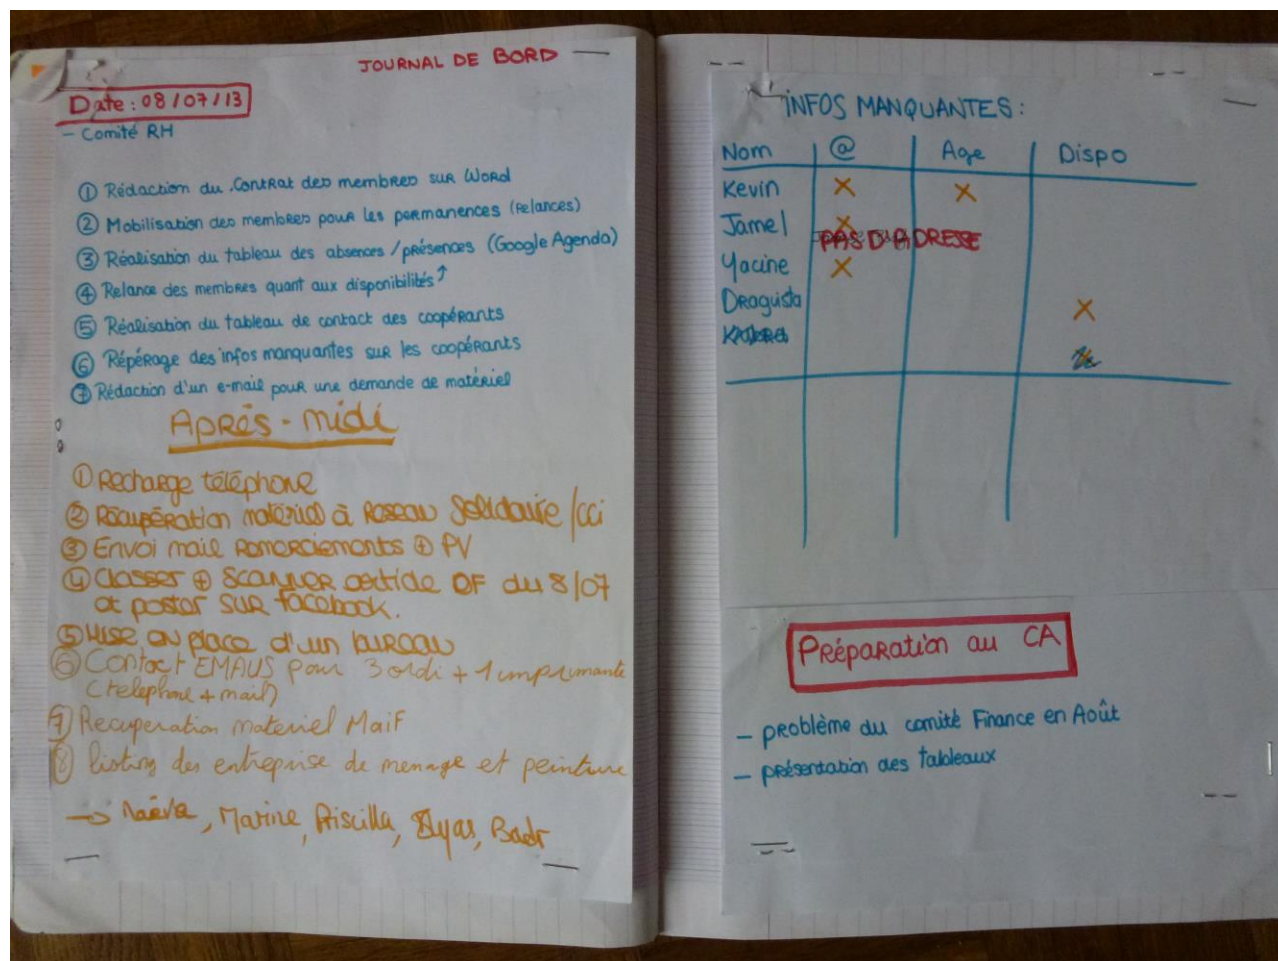 JOURNAL DE BORD
Date : 08/07/13
- Comité RH
① Rédaction du Contrat des membres sur Word
② Mobilisation des membres pour les permanences (Relances)
③ Réalisation du tableau des absences / présences (Google Agenda)
④ Relance des membres quant aux disponibilités ↑
⑤ Réalisation du tableau de contact des coopérants
⑥ Répérage des infos manquantes sur les coopérants
⑦ Rédaction d'un e-mail pour une demande de matériel
Après-midi
① Recharge téléphone
② Récupération matériel à Reseau Solidaire / cci
③ Envoi mail remerciements + PV
④ Classer + Scanner article OF du 8/07
et poster sur facebook.
⑤ Mise en place d'un bureau
⑥ Contact EMAUS pour 3 ordi + 1 imprimante
(telephone + mail)
⑦ Recuperation materiel Maif
⑧ listing des entreprise de menage et peinture
→ Maéva, Marine, Priscilla, Elyas, Badr
INFOS MANQUANTES :
Nom @ Age Dispo
Kevin X X
Jamel X
PAS D'ADRESSE
Yacine X
Dragusta X
Préparation au CA
- problème du comité Finance en Août
- présentation des tableaux